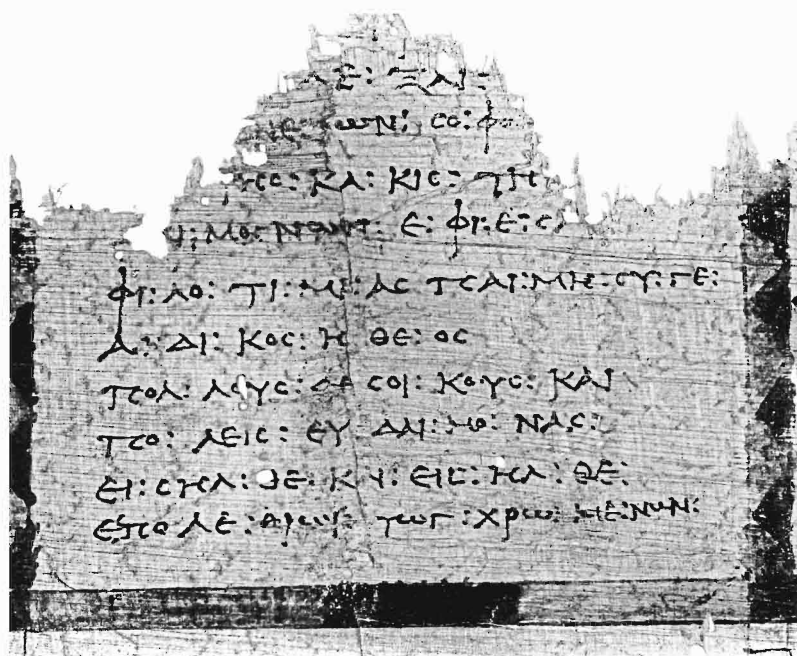 ΔΕ: ΞΑΙ:
ΝΕ: ΩΝ: CΟ: Φ
ΗC: ΚΑ: ΚΙC: ΤΗ
Ι: ΜΟ: ΝΩΝ: Ε: ΦΙ: Ε: C
ΦΙ: ΛΟ: ΤΙ: ΜΕ: ΑC ΠΑΙ: ΜΗ: CΥ: ΓΕ:
Α: ΔΙ: ΚΟC: Η ΘΕ: ΟC
ΠΟΛ: ΛΟΥC: ΔΕ CΟΙ: ΚΟΥC: ΚΑΙ
ΠΟ: ΛΕΙC: ΕΥ ΔΑΙ: ΜΟ: ΝΑC:
ΕΙ: CΗΛ: ΘΕ: Κ Υ: ΕΙC: ΗΛ: ΘΕ:
ΕΠΟ ΛΕ: ΘΡΩΙ: ΤΩΓ: ΧΡΩ: ΜΕ: ΝΩΝ: